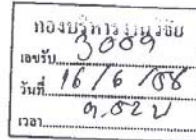 กองบริหารงานวิจัย
เลขรับ 3009
วันที่ 16/6/58
เวลา 9.52น